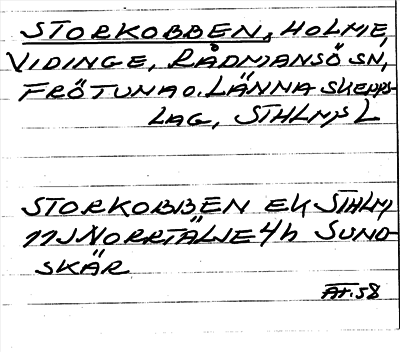 STORKOBBEN, HOLME,
VIDINGE, RÅDMANSÖ SN,
FRÖTUNA O. LÄNNA SKEPPS-
LAG, STHLMS L
STORKOBBEN EK STHLM
11J NORRTÄLJE 4h SUND-
SKÄR
AT. 58